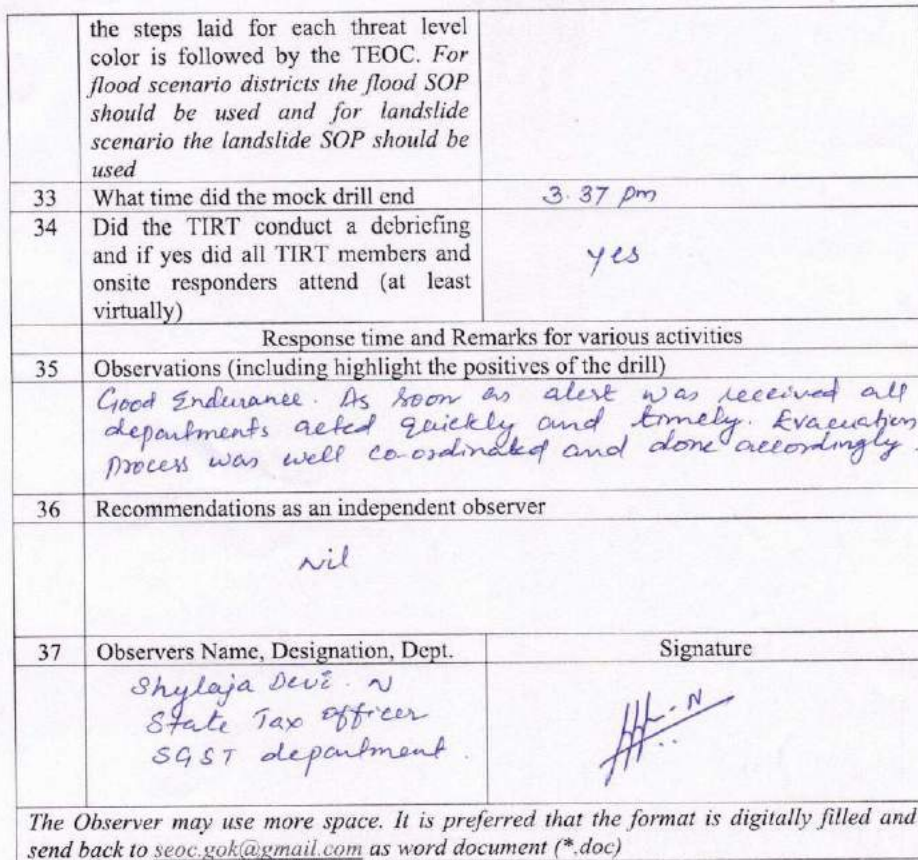 the steps laid for each threat level
color is followed by the TEOC. For
flood scenario districts the flood SOP
should be used and for landslide
scenario the landslide SOP should be
used
33 What time did the mock drill end 3.37 pm
34 Did the TIRT conduct a debriefing
and if yes did all TIRT members and
onsite responders attend (at least
virtually)
yes
Response time and Remarks for various activities
35 Observations (including highlight the positives of the drill)
Good Endurance. As soon as alert was received all
departments acted quickly and timely. Evacuation
process was well co-ordinated and done accordingly.
36 Recommendations as an independent observer
Nil
37 Observers Name, Designation, Dept. Signature
Shylaja Devi. N
State Tax officer
SGST department.
The Observer may use more space. It is preferred that the format is digitally filled and
send back to seoc.gok@gmail.com as word document (*.doc)